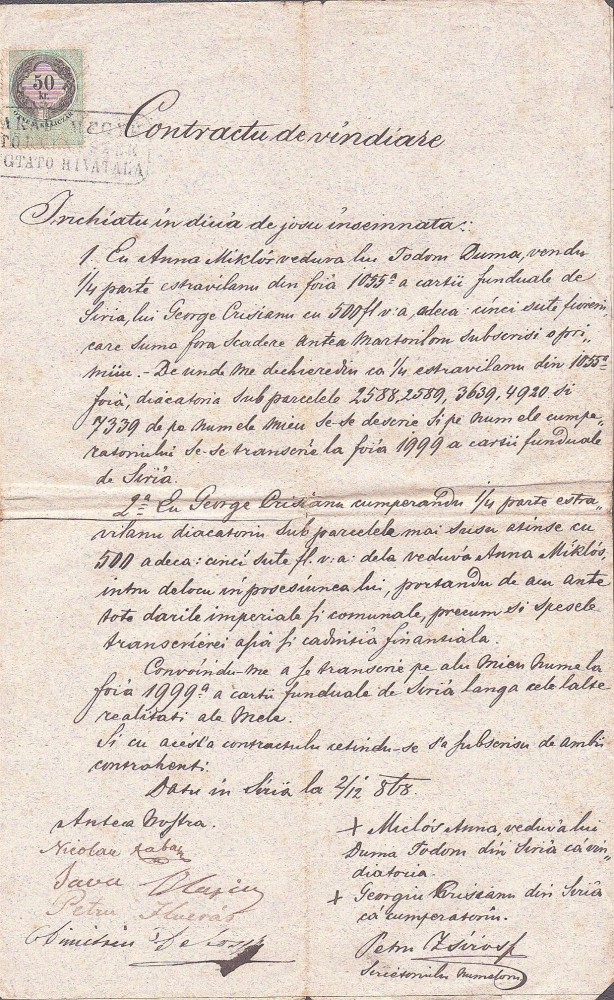 50
kr.
GTATO HIVATALA
Contractu de vindiare
Inchiatu in diua de josu insemnata:
1. Eu Anna Miklós veduva lui Todom Duma, vendu
1/4 parte estravilanu din foiá 1055ª a cartii funduale de
Siria, lui George Crisianu cu 500 fl v: a, adeca: cinci sute fioreni,
care suma fora scadere antea Martorilom subscrisi o pri„
miiu. - De unde me dechierediu ca 1/4 estravilanu din 1055ª
foiá, diacatoria sub parcelele 2588, 2589, 3639, 4920 si
7339 de pe numele mieu se-se descrie si pe numele cumpe„
ratoriului se-se transcrie la foiá 1999 a cartii funduale
de Siriá.
2ª Eu George Crisianu cumperandu 1/4 parte estra„
vilanu diacatoriu sub parcelele mai susu atinse cu
500 adeca: cinci sute fl. v: a: dela veduva Anna Miklós,
intru delocu in posesiunea lui, portandu de acu ante
tote darile imperiale si comunale, precum si spesele
transcrierei asiá si cadintia finantiala.
Convoindu-me a se transcrie pe alu mieu nume la
foiá 1999ª a cartii funduale de Siriá langa cele lalte
realitati ale mele.
Si cu acést'a contractulu cetindu-se s'a subscrisu de ambii
contrahenti.
Datu in Siriá la 2/12 868.
Antea Nostra.
Nicolau
Sava
Petru
Dimitriu
+ Miclós Anna, veduvá lui
Duma Todom din Siriá cá vin„
diatoria.
+ Georgiu Criseanu din Siriá
cá cumperatoriu.
Petru Zsiross